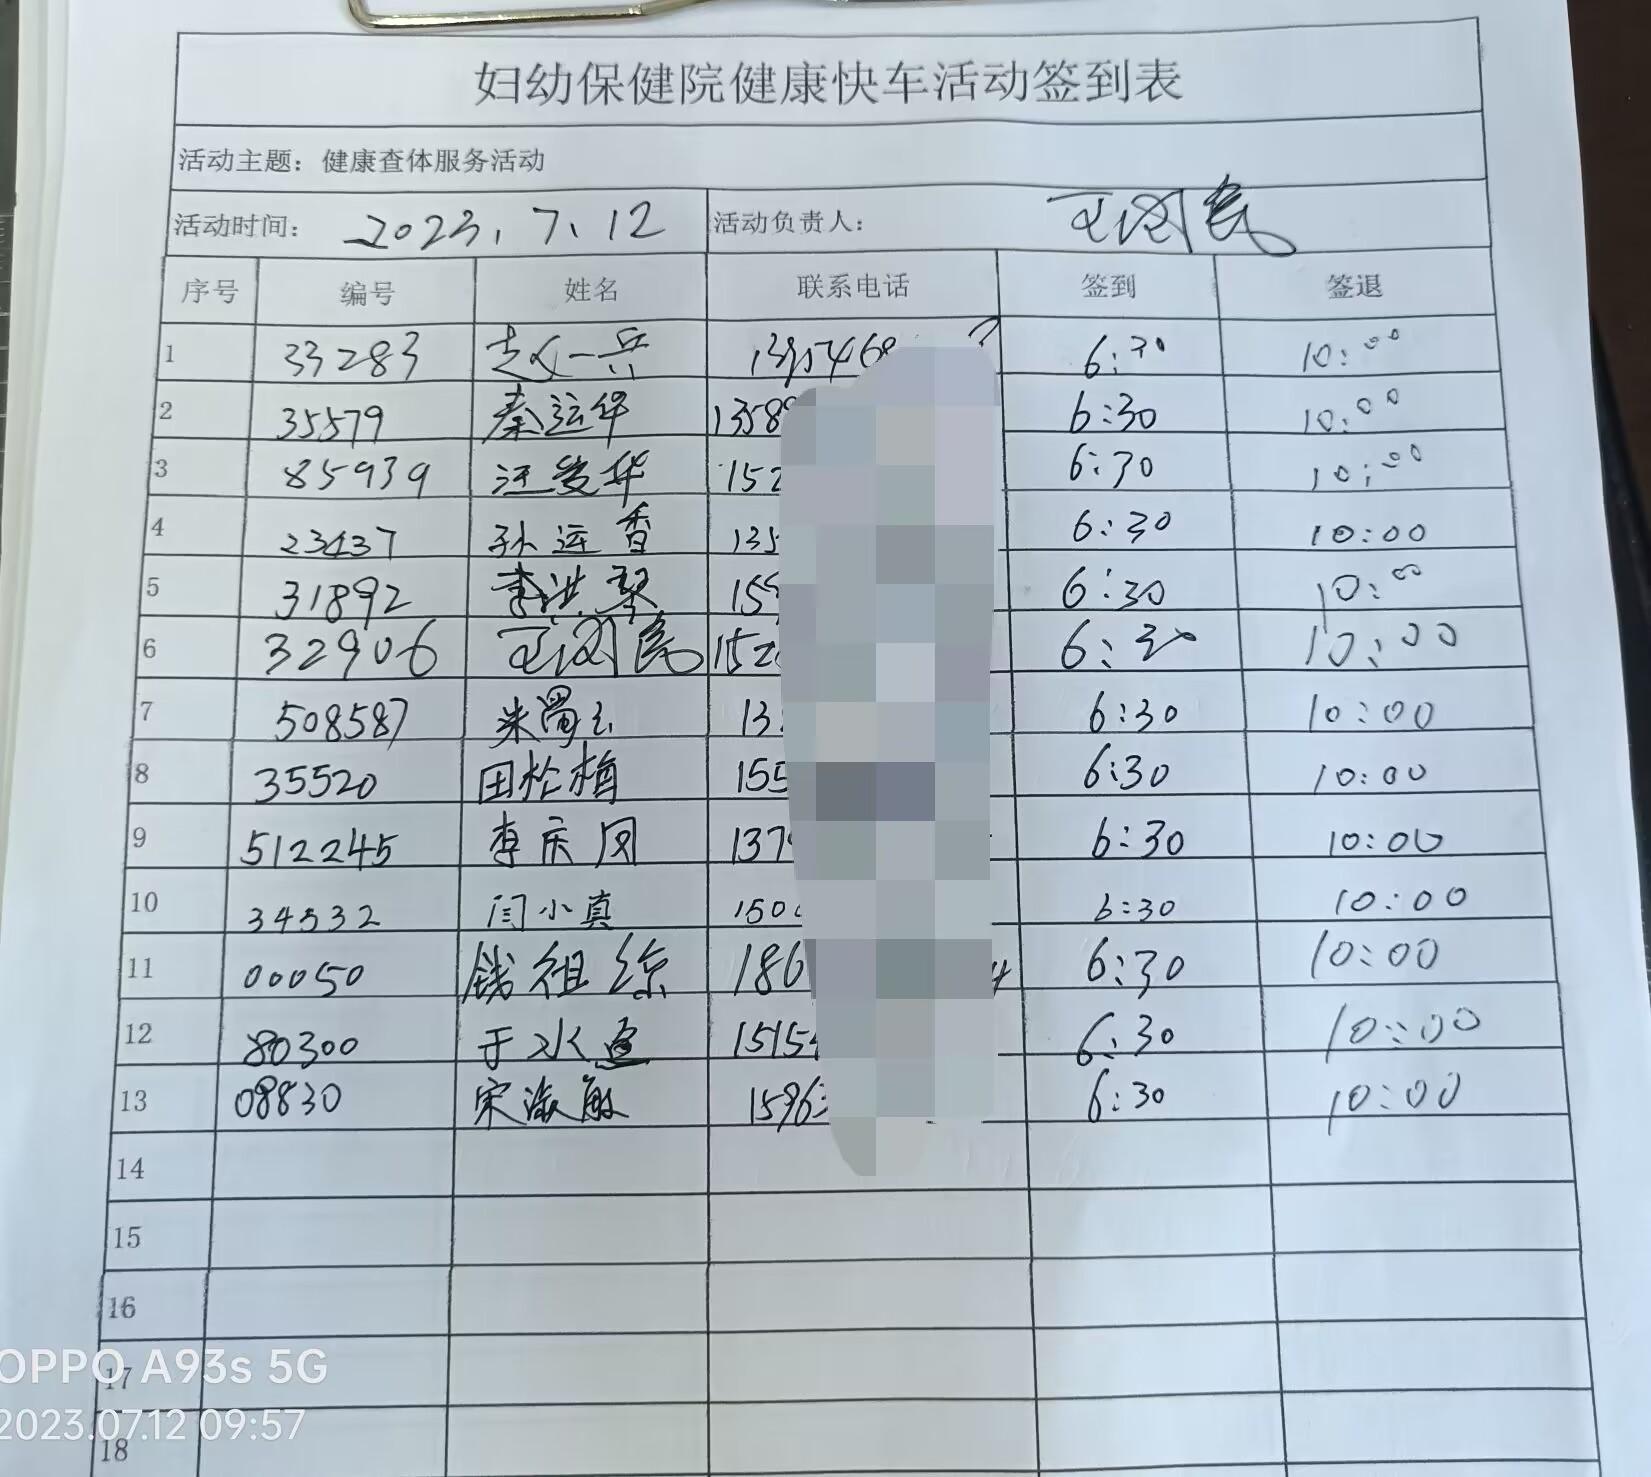 妇幼保健院健康快车活动签到表
活动主题：健康查体服务活动
活动时间： 2023.7.12 活动负责人： 王国民
序号 编号 姓名 联系电话 签到 签退
1 33283 赵一兵 1395468 6:30 10:00
2 35579 秦运华 1358 6:30 10:00
3 85939 汪发华 152 6:30 10:00
4 23437 孙运香 135 6:30 10:00
5 31892 李洪琴 159 6:30 10:00
6 32906 王国民 152 6:30 10:00
7 508587 朱蜀玉 13 6:30 10:00
8 35520 田松梅 155 6:30 10:00
9 512245 李庆凤 137 6:30 10:00
10 34532 闫小真 150 6:30 10:00
11 00050 钱祖综 186 4 6:30 10:00
12 80300 于水 1515 6:30 10:00
13 08830 宋海敏 1596 6:30 10:00
14
15
16
17
18
OPPO A93s 5G
2023.07.12 09:57